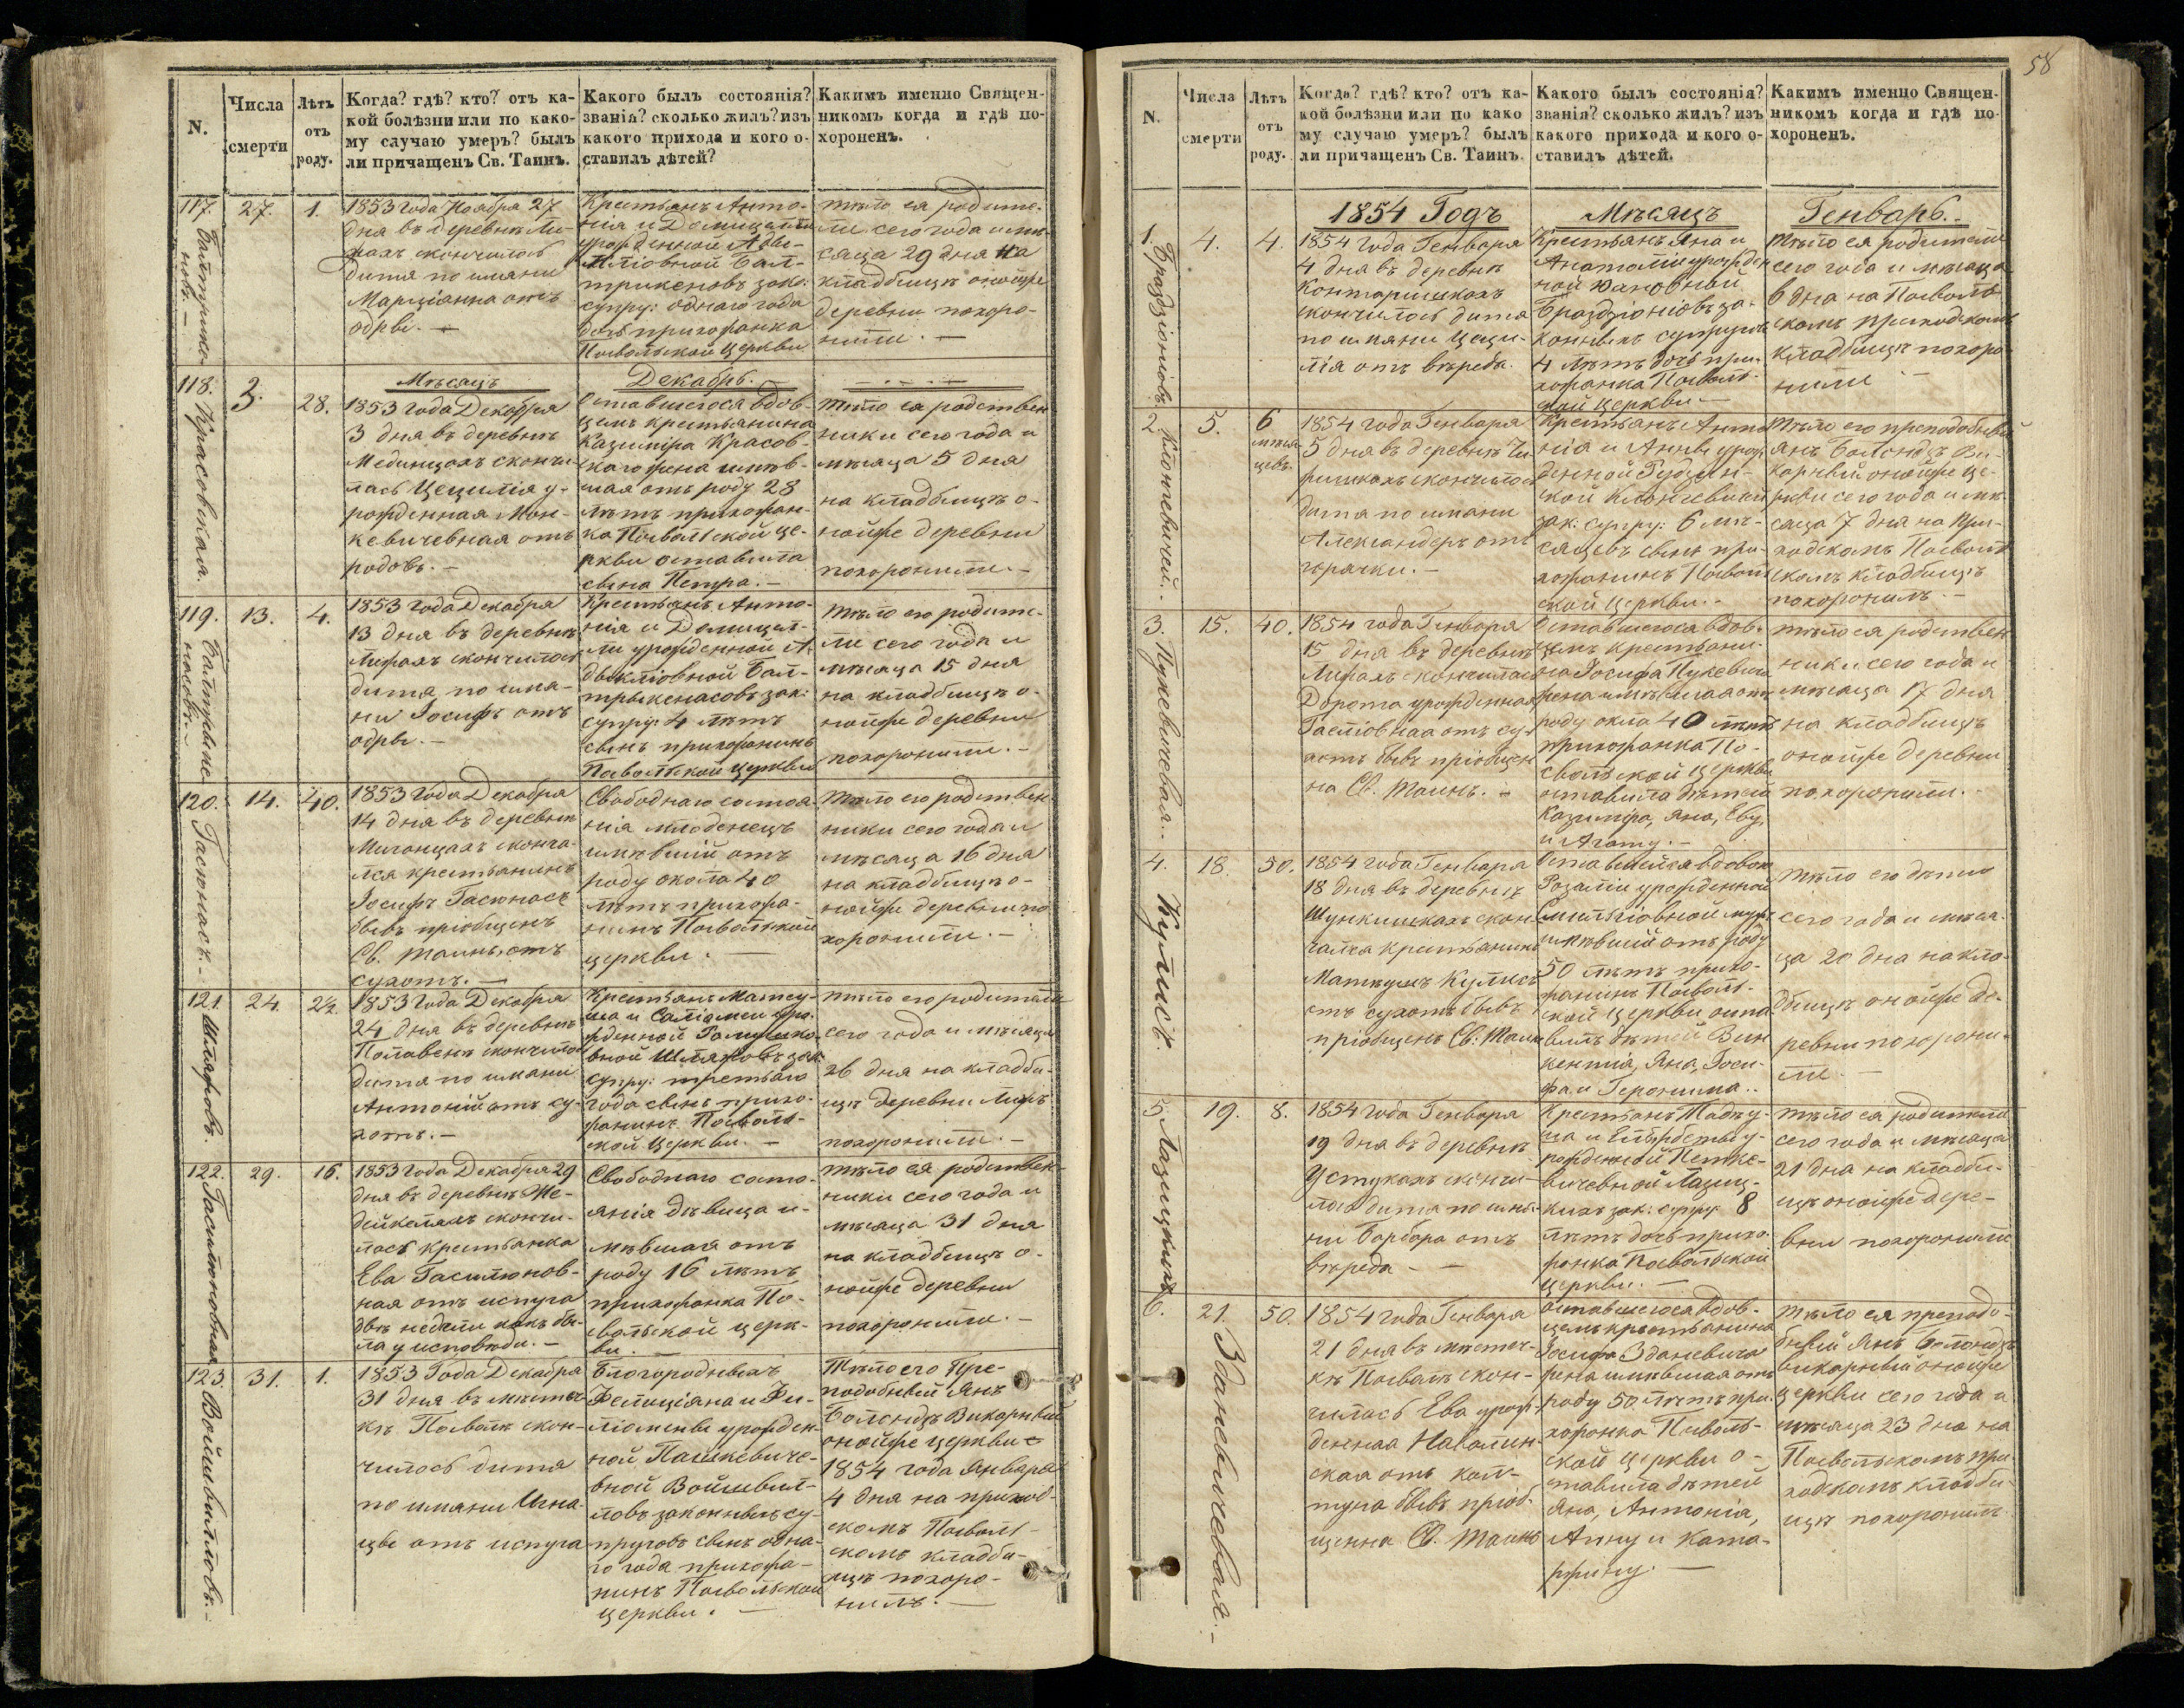 N.
Числа
смерти
Лѣтъ
отъ
роду.
Когда? гдѣ? кто? отъ ка-
кой болѣзни или по како-
му случаю умеръ? былъ
ли причащенъ Св. Таинъ.
Какого былъ состоянія?
званія? сколько жилъ? изъ
какого прихода и кого о-
ставилъ дѣтей?
Какимъ именно Священ-
никомъ когда и гдѣ по-
хороненъ.
117.
27.
1.
1853 года Ноября 27
дня въ деревнѣ Ли-
фахъ скончилось
дитя по имяни
Марціянна отъ
одры. —
Крестьянъ Анто-
нія и
урожденной
зако:
супру: однаго года
дочь прихожанка
Посвольской церкви
тѣло ея родите-
ли сего года и мѣ-
сяца 29 дня на
кладбищѣ онойже
деревни похоро-
нили. —
Мѣсяцъ
Декабрь. —
118.
Красовская.
3.
28.
1853 года Декабря
3 дня въ деревнѣ
Мединцахъ скончи-
лась Цецилія у-
рожденная Мон-
кевичевная отъ
родовъ. —
Оставшегося вдов-
цемъ крестьянина
Казимира Красов-
скаго жена имѣв-
шая отъ роду 28
лѣтъ прихожан-
ка Посвольской це-
ркви оставила
сына Петра. —
Тѣло ея родствен-
ники сего года и
мѣсяца 5 дня
на кладбищѣ о-
нойже деревни
похоронили. —
119.
13.
4.
1853 года Декабря
13 дня въ деревнѣ
Лифахъ скончилось
дитя по имя-
ни Іосифъ отъ
одры. —
Крестьянъ Анто-
нія и Домицел-
ли урожденной А-
супру: 4 лѣтъ
сынъ прихожанинъ
Посвольской церкви
Тѣло его родите-
ли сего года и
мѣсяца 15 дня
на кладбищѣ о-
нойже деревни
похоронили. —
120.
Гасюнасъ. —
14.
40.
1853 года Декабря
14 дня въ деревнѣ
сконча-
лся крестьянинъ
Іосифъ Гасюнасъ
бывъ пріобщенъ
Св. Таинъ, отъ
сухотъ. —
Свободнаго состоя-
нія младенецъ
имѣвшій отъ
роду окола 40
лѣтъ прихожа-
нинъ Посвольской
церкви. —
Тѣло его родствен-
ники сего года и
мѣсяца 16 дня
на кладбищѣ о-
нойже деревни по-
хоронили. —
121.
Шляжовъ.
24.
2½.
1853 года Декабря
24 дня въ деревнѣ
скончилось
дитя по имяни
Антоній отъ су-
хотъ. —
Крестьянъ Матеу-
ша и Саломеи уро-
жденной
вной Шляжовъ зак:
супру: третьяго
года сынъ прихо-
жанинъ Посволь-
ской церкви. —
тѣло его родители
сего года и мѣсяца
26 дня на кладби-
щѣ деревни Лифъ
похоронили. —
122.
Гасилюновная
29.
16.
1853 года Декабря 29
дня въ деревнѣ Же-
дейкеляхъ скончи-
лась крестьянка
Ева Гасилюнов-
ная отъ испуга
двѣ недели какъ бы-
ла у исповѣди. —
Свободнаго состо-
янія дѣвица и-
мѣвшая отъ
роду 16 лѣтъ
прихожанка По-
свольской церк-
ви. —
тѣло ея родствен-
ники сего года и
мѣсяца 31 дня
на кладбищѣ о-
нойже деревни
похоронили. —
123.
Войшвилловъ. —
31.
1.
1853 Года Декабря
31 дня въ мѣстеч-
кѣ Посволѣ скон-
чилось дитя
по имяни Игна-
цы отъ испуга
Благородныхъ
Фелиціана и Фи-
ліомены урожден-
ной Пашкевиче-
вной Войшвил-
ловъ законныхъ су-
пруговъ сынъ одна-
го года прихожа-
нинъ Посвольской
церкви. —
Тѣло его Пре-
подобный Янъ
Викарный
онойже церкви
1854 года Января
4 дня на приход-
скомъ Посволь-
скомъ кладби-
щѣ похоро-
нилъ. —
58
N.
Числа
смерти
Лѣтъ
отъ
роду.
Когда? гдѣ? кто? отъ ка-
кой болѣзни или по како
му случаю умеръ? былъ
ли причащенъ Св. Таинъ.
Какого былъ состоянія?
званія? сколько жилъ? изъ
какого прихода и кого о-
ставилъ дѣтей.
Какимъ именно Священ-
никомъ когда и гдѣ по-
хороненъ.
1854 Годъ
Мѣсяцъ
Генварь. —
1.
Браздзіонювъ
4.
4.
1854 года Генваря
4 дня въ деревнѣ
Контаришкахъ
скончилось дитя
по имяни Цеци-
лія отъ вереда.
Крестьянъ Яна и
Анатоліи урожден
ной
Браздзіонювъ за-
конныхъ супруговъ
4 лѣтъ дочь при-
хожанка Посволь-
ской церкви. —
Тѣло ея родители
сего года и мѣсяца
6 дня на Посволь-
скомъ приходскомъ
кладбищѣ похоро-
нили —
2.
Клюнгевичей.
5.
6
мѣся-
цевъ.
1854 года Генваря
5 дня въ деревнѣ
скончилось
дитя по имяни
Александеръ отъ
горячки. —
Крестьянъ Анто
нія и Анны урож-
денной
зак: супру: 6 мѣ-
сяцевъ сынъ при-
хожанинъ Посволь
ской церкви. —
Тѣло его преподобный
Янъ Ви-
карный онойже це-
ркви сего года и мѣ-
сяца 7 дня на При-
ходскомъ Посволь
скомъ кладбищѣ
похоронилъ. —
3.
Пукевичевая.
15.
40.
1854 года Генваря
15 дня въ деревнѣ
Лифахъ скончилась
Дорота урожденная
отъ су-
хотъ бывъ пріобщен
на Св. Таинъ. —
Оставшегося вдов-
цемъ крестьяни-
на Іосифа Пукевича
жена имѣвшая отъ
роду окола 40 лѣтъ
прихожанка По-
свольской церкви
оставила дѣтей
Казимира, Яна, Еву,
и Агату. —
тѣло ея родствен
ники сего года и
мѣсяца 17 дня
на кладбищѣ
онойже деревни
похоронили. —
4.
Кулисъ.
18.
50.
1854 года Генваря
18 дня въ деревнѣ
Шункишкахъ скон-
чался крестьянинъ
Матеушъ Кулисъ
отъ сухотъ бывъ
пріобщенъ Св. Таинъ
Оставшейся вдовою
Розаліи урожденной
мужъ
имѣвшій отъ роду
50 лѣтъ прихо-
жанинъ Посволь-
ской церкви оста
вилъ дѣтей Вин
кентія, Яна, Іоси-
фа и Геронима. .
тѣло его дѣти
сего года и мѣся-
ца 20 дня на кла-
дбищѣ онойже де-
ревни похорони-
ли. —
5.
Лазицкихъ.
19.
8.
1854 года Генваря
19 дня въ деревнѣ
Устукахъ скончи-
лось дитя по имя-
ни Барбара отъ
вереда — —
Крестьянъ Тадеу-
ша и Ельжбеты у-
рожденной Петке-
вичевной Лазиц-
кихъ зак: супру: 8
лѣтъ дочь прихо-
жанка Посвольской
церкви. —
тѣло ея родители
сего года и мѣсяца
21 дня на кладби-
щѣ онойже дере-
вни похоронили
6.
Зданевичевая. —
21.
50.
1854 года Генваря
21 дня въ мѣстеч-
кѣ Посволѣ скон-
чилась Ева урож-
денная
ская отъ кол-
туна бывъ пріоб-
щенна Св. Таинъ
оставшегося вдов-
цемъ крестьянина
Іосифа Зданевича
жена имѣвшая отъ
роду 50 лѣтъ при-
хожанка Посволь-
ской церкви о-
ставила дѣтей
Яна, Антонія,
Анну и Ката-
ржину. —
Тѣло ея преподо-
бный Янъ
викарный онойже
церкви сего года и
мѣсяца 23 дня на
Посвольскомъ при-
ходскомъ кладби-
щѣ похоронилъ.